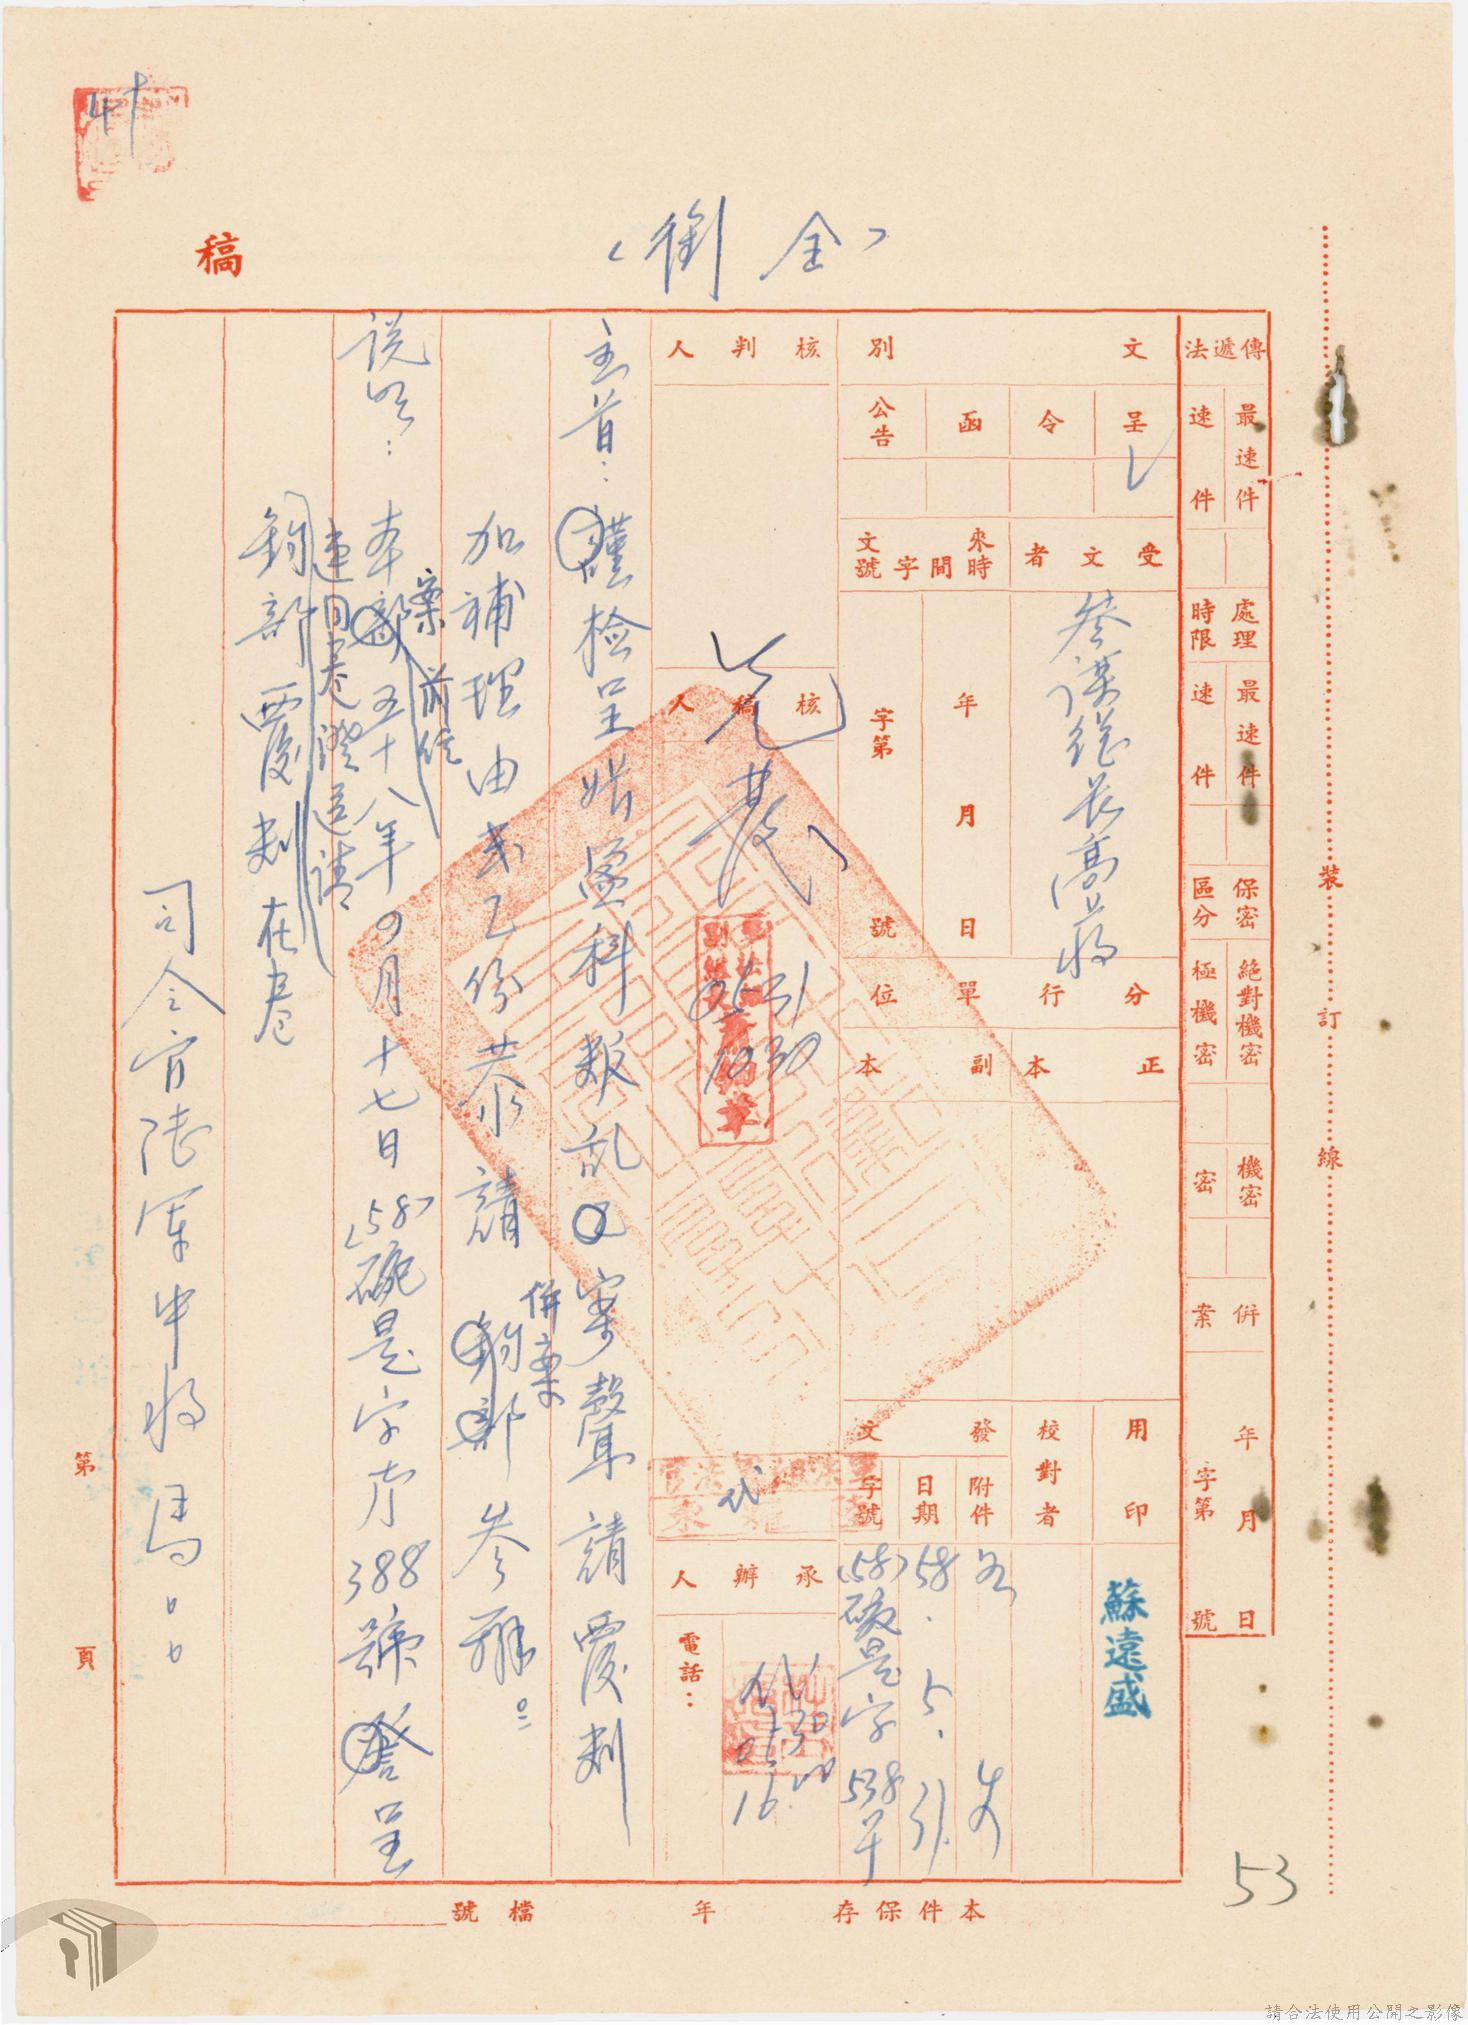 41
稿
（銜全）
傳遞法
最速件
速件
處理時限
最速件
速件
保密區分
絕對機密
極機密
機密
密
併案
年月日
字第號
文別
呈
令
函
公告
受文者
來時間字文號
參謀總長高上將
年月日
字第號
分行單位
正本
副本
用印
蘇遠盛
校對者
發文
附件
日期
字號
如文
58.5.31.
（58）
字538
核判人
核稿人
0531
1030
代
承辦人
電話：
代
0530
1600
主旨：謹檢呈 叛亂 案聲請覆判
加補理由書乙份恭請 鈞部 併案 參辦。
說明：本案前經 五十八年 月十七日（58） 字第388號 呈
連同卷證送請
鈞部覆判在卷
司令官陸軍中將馬○○
裝
訂
線
第頁
本件保存年
檔號
53
請合法使用公開之影像